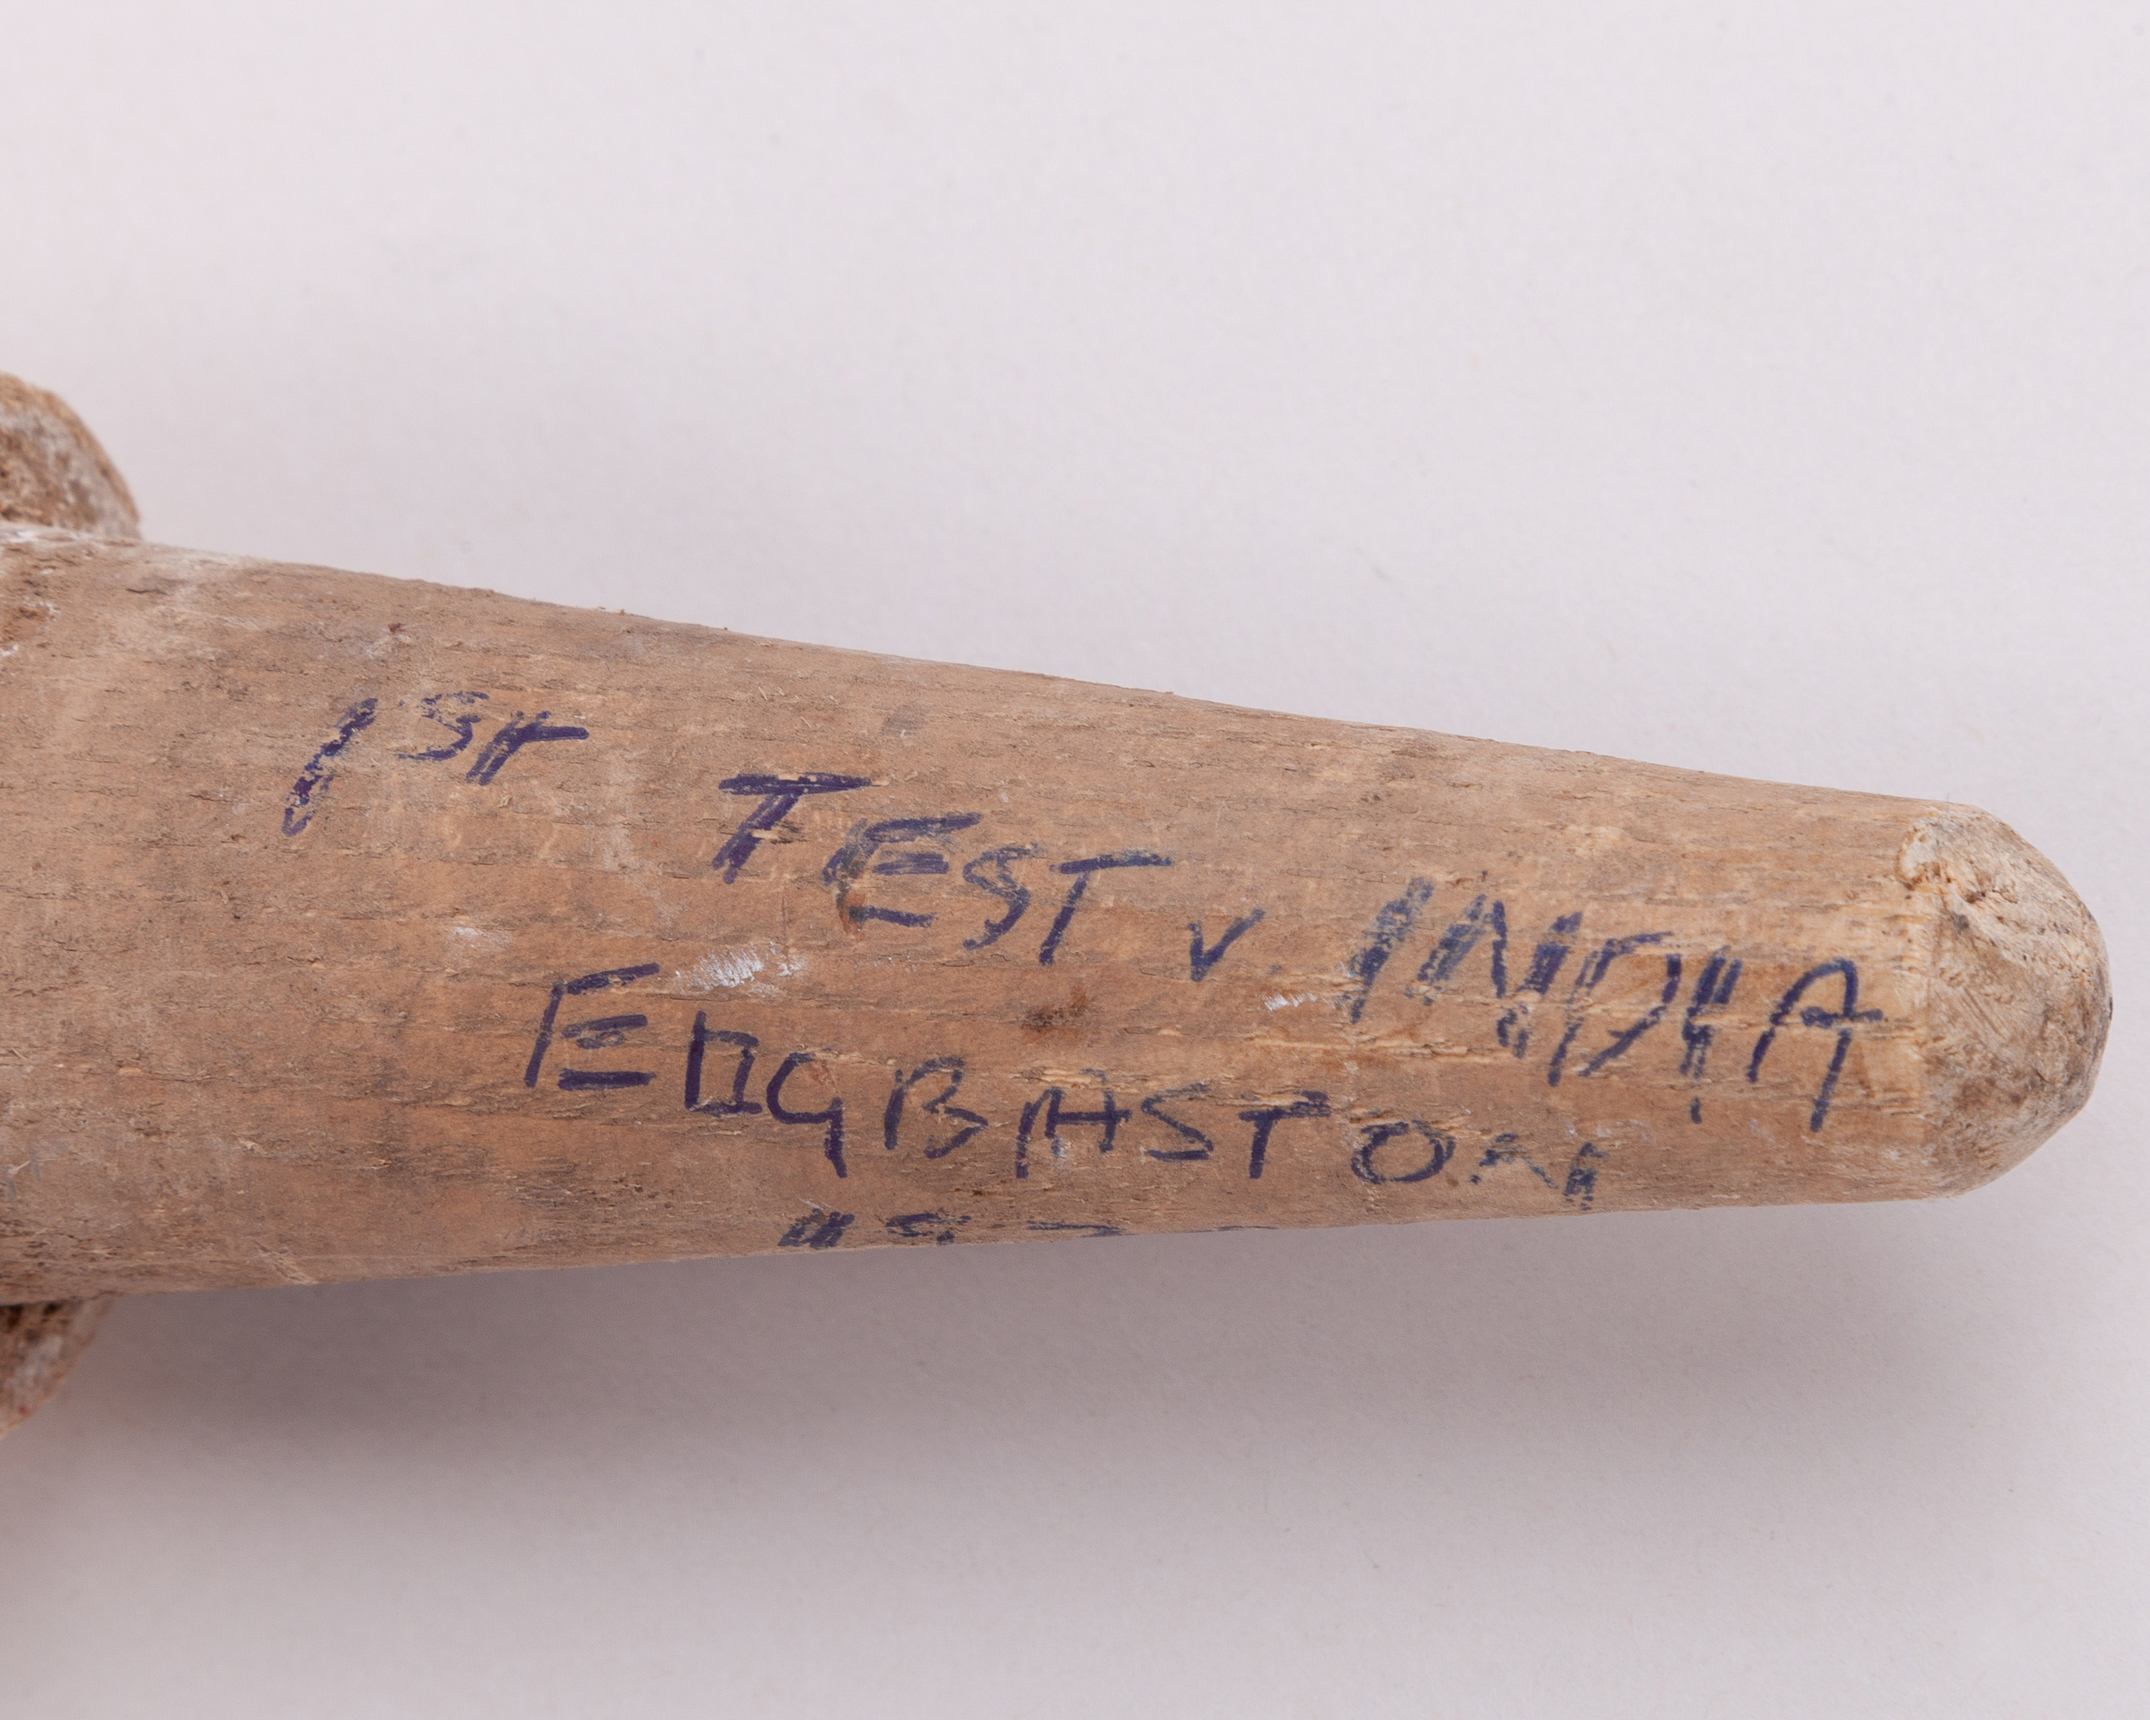 1st TEST v. INDIA
EDGBASTON